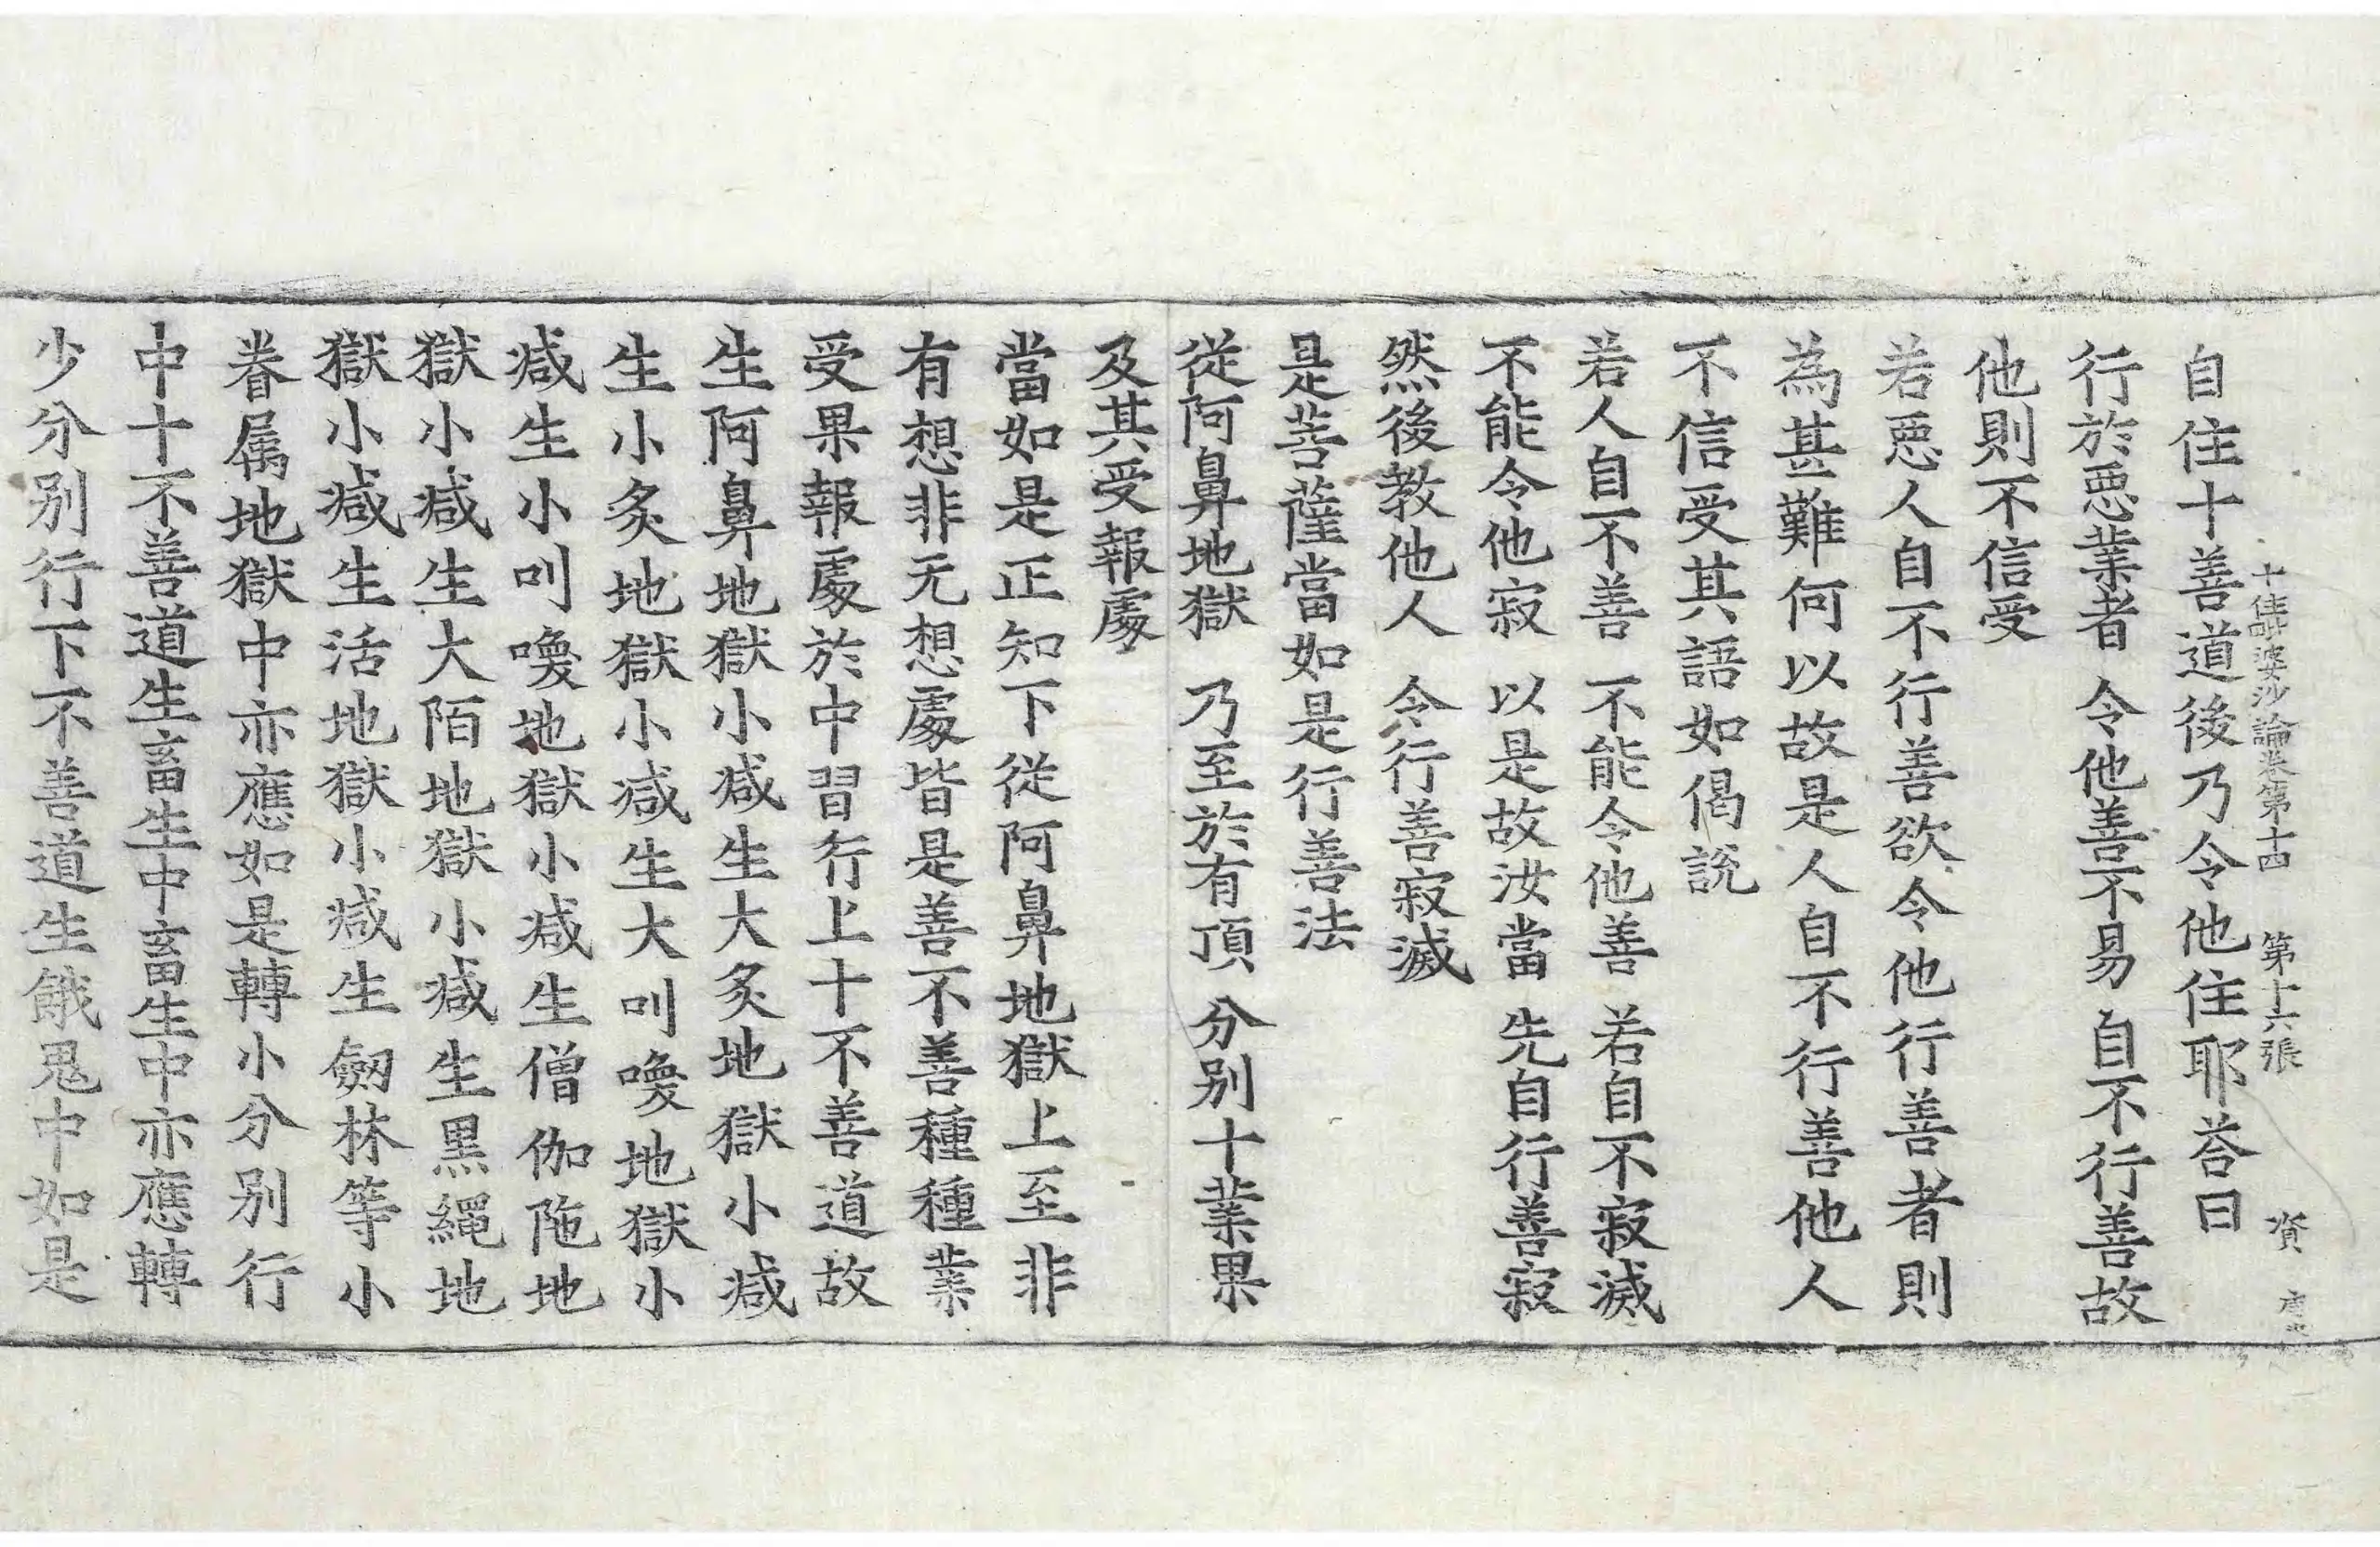 十住毗婆沙論卷第十四 第十六張 資
自住十善道後乃令他住耶荅曰
行於惡業者 令他善不易 自不行善故
他則不信受
若惡人自不行善欲令他行善者則
為甚難何以故是人自不行善他人
不信受其語如偈說
若人自不善 不能令他善 若自不寂滅
不能令他寂 以是故汝當 先自行善寂
然後教他人 令行善寂滅
是菩薩當如是行善法
從阿鼻地獄 乃至於有頂 分別十業果
及其受報處
當如是正知下從阿鼻地獄上至非
有想非无想處皆是善不善種種業
受果報處於中習行上十不善道故
生阿鼻地獄小減生大炙地獄小減
生小炙地獄小減生大叫喚地獄小
減生小叫喚地獄小減生僧伽陁地
獄小減生大陌地獄小減生黑繩地
獄小減生活地獄小減生劒林等小
眷属地獄中亦應如是轉小分別行
中十不善道生畜生中畜生中亦應轉
少分別行下不善道生餓鬼中如是